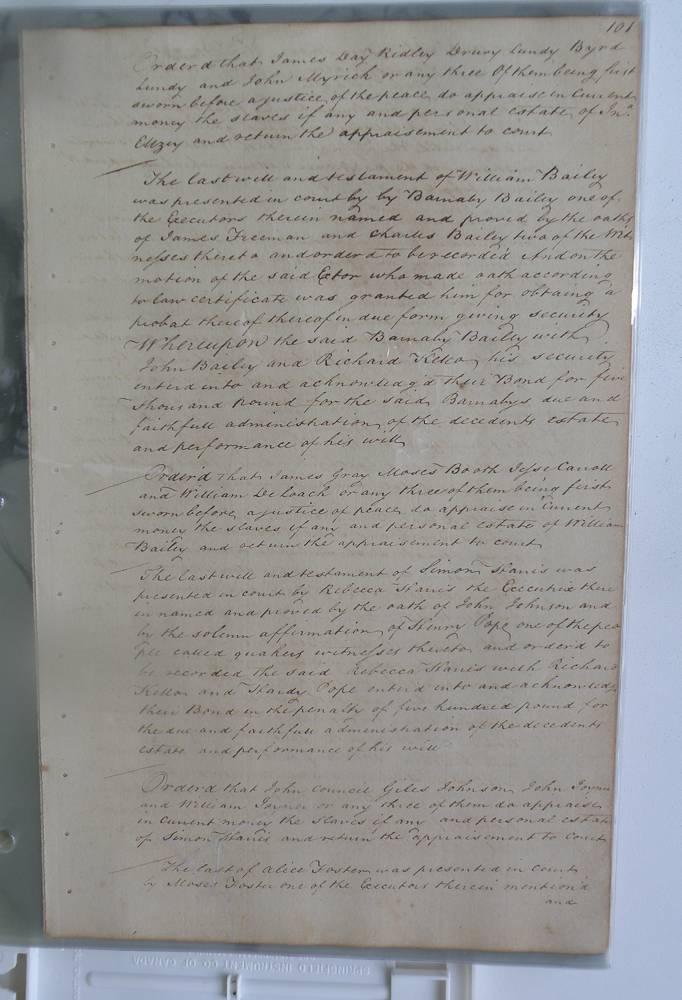 101
Order'd that James Day Ridley Drury Lundy Byrd
Lundy and John Myrick or any three Of them being first
sworn before a justice of the peace do appraise in Current
money the slaves if any and personal estate of Jno.
Ellzey and return the appraisement to court
The last will and testament of William Bailey
was presented in court by by Barnaby Bailey one of
the Executors therein named and proved by the oaths
of James Freeman and Charles Bailey two of the Wit
nesses thereto and order'd to be recorded And on the
motion of the said Extor who made oath according
to law certificate was granted him for obtaing a
probat thereof thereof in due form giving security
Whereupon the said Barnaby Bailey with
John Bailey and Richard Kello his security
enterd into and acknowledg'd their Bond for five
thousand pound for the said Barnabys due and
faithfull administration of the decedents estate
and performance of his will
Order'd that James Gray Moses Booth Jesse Carroll
and William DeLoach or any three of them being first
sworn before a justice of peace do appraise in Current
money the slaves if any and personal estate of William
Bailey and return the appraisement to court
The last will and testament of Simon Harris was
presented in court by Rebecca Harris the Executrix there
in named and proved by the oath of John Johnson and
by the solemn affirmation of Henry Pope one of the peo
ple called quakers witnesses thereto and order'd to
be recorded the said Rebecca Harris with Richard
Kello and Hardy Pope enterd into and acknowledg
their Bond in the penalty of five hundred pound for
the due and faithfull administration of the decedents
estate and performance of his will
Order'd that John Council Giles Johnson John Joyner
and William Joyner or any three of them do appraise
in Current money the slaves if any and personal estate
of Simon Harris and return the appraisement to Court
The last of Alice Foster was presented in Court
by Moses Foster one of the Executors therein mention'd
and
SPRINGFIELD INSTRUMENT CO. OF CANADA